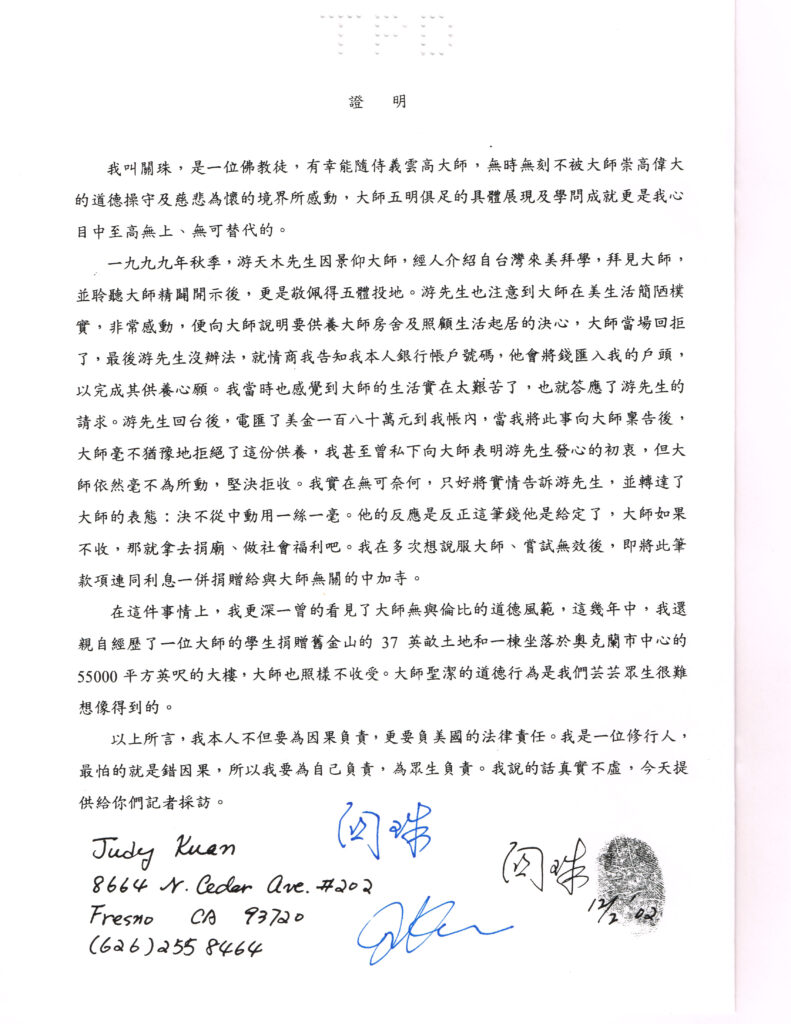 TPD
證 明
我叫關珠，是一位佛教徒，有幸能隨侍義雲高大師，無時無刻不被大師崇高偉大
的道德操守及慈悲為懷的境界所感動，大師五明俱足的具體展現及學問成就更是我心
目中至高無上、無可替代的。
一九九九年秋季，游天木先生因景仰大師，經人介紹自台灣來美拜學，拜見大師，
並聆聽大師精闢開示後，更是敬佩得五體投地。游先生也注意到大師在美生活簡陋樸
實，非常感動，便向大師說明要供養大師房舍及照顧生活起居的決心，大師當場回拒
了，最後游先生沒辦法，就情商我告知我本人銀行帳戶號碼，他會將錢匯入我的戶頭，
以完成其供養心願。我當時也感覺到大師的生活實在太艱苦了，也就答應了游先生的
請求。游先生回台後，電匯了美金一百八十萬元到我帳內，當我將此事向大師稟告後，
大師毫不猶豫地拒絕了這份供養，我甚至曾私下向大師表明游先生發心的初衷，但大
師依然毫不為所動，堅決拒收。我實在無可奈何，只好將實情告訴游先生，並轉達了
大師的表態：決不從中動用一絲一毫。他的反應是反正這筆錢他是給定了，大師如果
不收，那就拿去捐廟、做社會福利吧。我在多次想說服大師、嘗試無效後，即將此筆
款項連同利息一併捐贈給與大師無關的中加寺。
在這件事情上，我更深一曾的看見了大師無與倫比的道德風範，這幾年中，我還
親自經歷了一位大師的學生捐贈舊金山的 37 英畝土地和一棟坐落於奧克蘭市中心的
55000 平方英呎的大樓，大師也照樣不收受。大師聖潔的道德行為是我們芸芸眾生很難
想像得到的。
以上所言，我本人不但要為因果負責，更要負美國的法律責任。我是一位修行人，
最怕的就是錯因果，所以我要為自己負責，為眾生負責。我說的話真實不虛，今天提
供給你們記者採訪。
関珠
Judy Kuan
8664 N. Cedar Ave. #202
Fresno CA 93720
(626)255 8464
関珠
12/2 '02